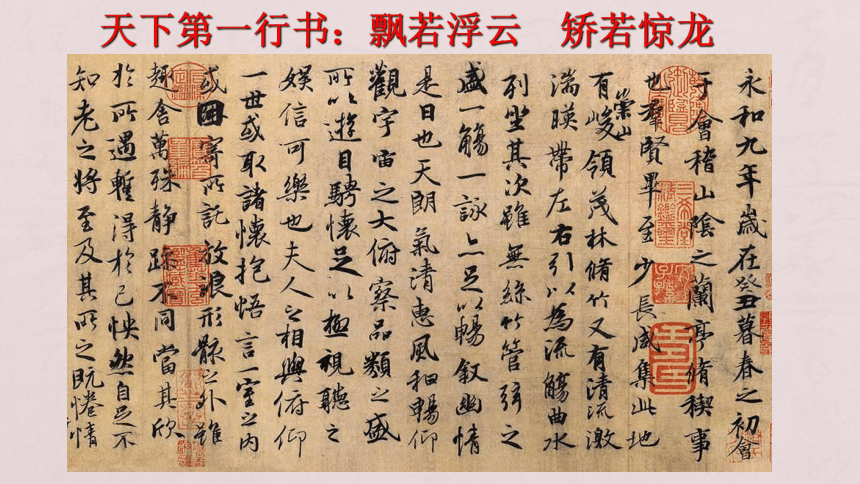 天下第一行书：飘若浮云　矫若惊龙
永和九年歲在癸丑暮春之初會
于會稽山陰之蘭亭脩稧事
也羣賢畢至少長咸集此地
有崇山峻領茂林脩竹又有清流激
湍暎帶左右引以為流觴曲水
列坐其次雖無絲竹管弦之
盛一觴一詠亦足以暢叙幽情
是日也天朗氣清惠風和暢仰
觀宇宙之大俯察品類之盛
所以遊目騁懷足以極視聽之
娛信可樂也夫人之相與俯仰
一世或取諸懷抱悟言一室之內
或因寄所託放浪形骸之外雖
趣舍萬殊静躁不同當其欣
於所遇暫得於己怏然自足不
知老之將至及其所之既惓情